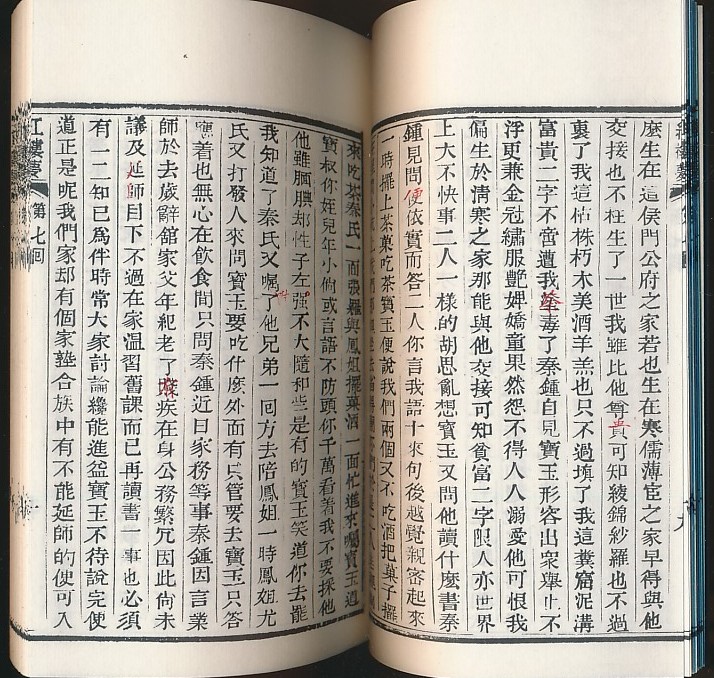 麽生在這侯門公府之家若也生在寒儒薄宦之家早得與他
交接也不枉生了一世我雖比他尊貴可知綾錦紗羅也不過
裹了我這枯株朽木美酒羊羔也只不過填了我這糞窟泥溝
富貴二字不啻遭我荼毒了秦鍾自見寶玉形容出衆舉止不
浮更兼金冠繡服艶婢嬌童果然怨不得人人溺愛他可恨我
偏生於清寒之家那能與他交接可知貧富二字限人亦世界
上大不快事二人一様的胡思亂想寶玉又問他讀什麽書秦
鍾見問便依實而答二人你言我語十來句後越覺親密起來
一時擺上茶菓吃茶寶玉便說我們兩個又不吃酒把菓子擺
來吃茶秦氏一面張羅與鳳姐擺菓酒一面忙進來囑寶玉道
寶叔你姪兒年小倘或言語不防頭你千萬看着我不要採他
他雖腼腆却性子左强不大隨和些是有的寶玉笑道你去罷
我知道了秦氏又囑了他兄弟一回方去陪鳳姐一時鳳姐尤
氏又打發人來問寶玉要吃什麽外面有只管要去寶玉只答
應着也無心在飲食間只問秦鍾近日家務等事秦鍾因言業
師於去歲辭館家父年紀老了殘疾在身公務繁冗因此尙未
議及延師目下不過在家溫習舊課而已再讀書一事也必須
有一二知己爲伴時常大家討論纔能進益寶玉不待說完便
道正是呢我們家却有個家塾合族中有不能延師的便可入
紅樓夢
第七囘